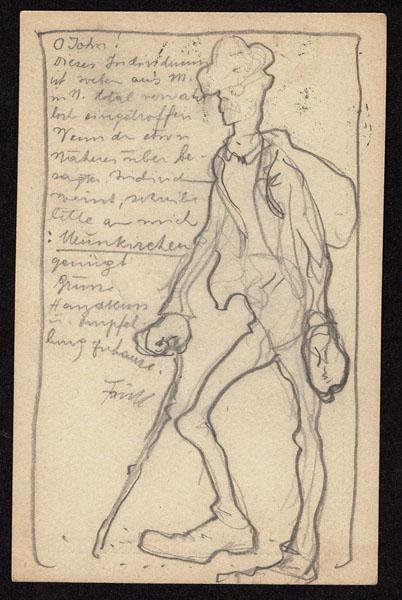 O John!
Dieses Individuum
ist soeben aus M.
in N. total verwahr
lost eingetroffen
Wenn du etwas
Näheres über be-
sagtes Individ
weißt, schreibe
bitte an mich
: Neunkirchen
genügt
Grüsse
Handkuss
u. Empfeh
lung zuhause.